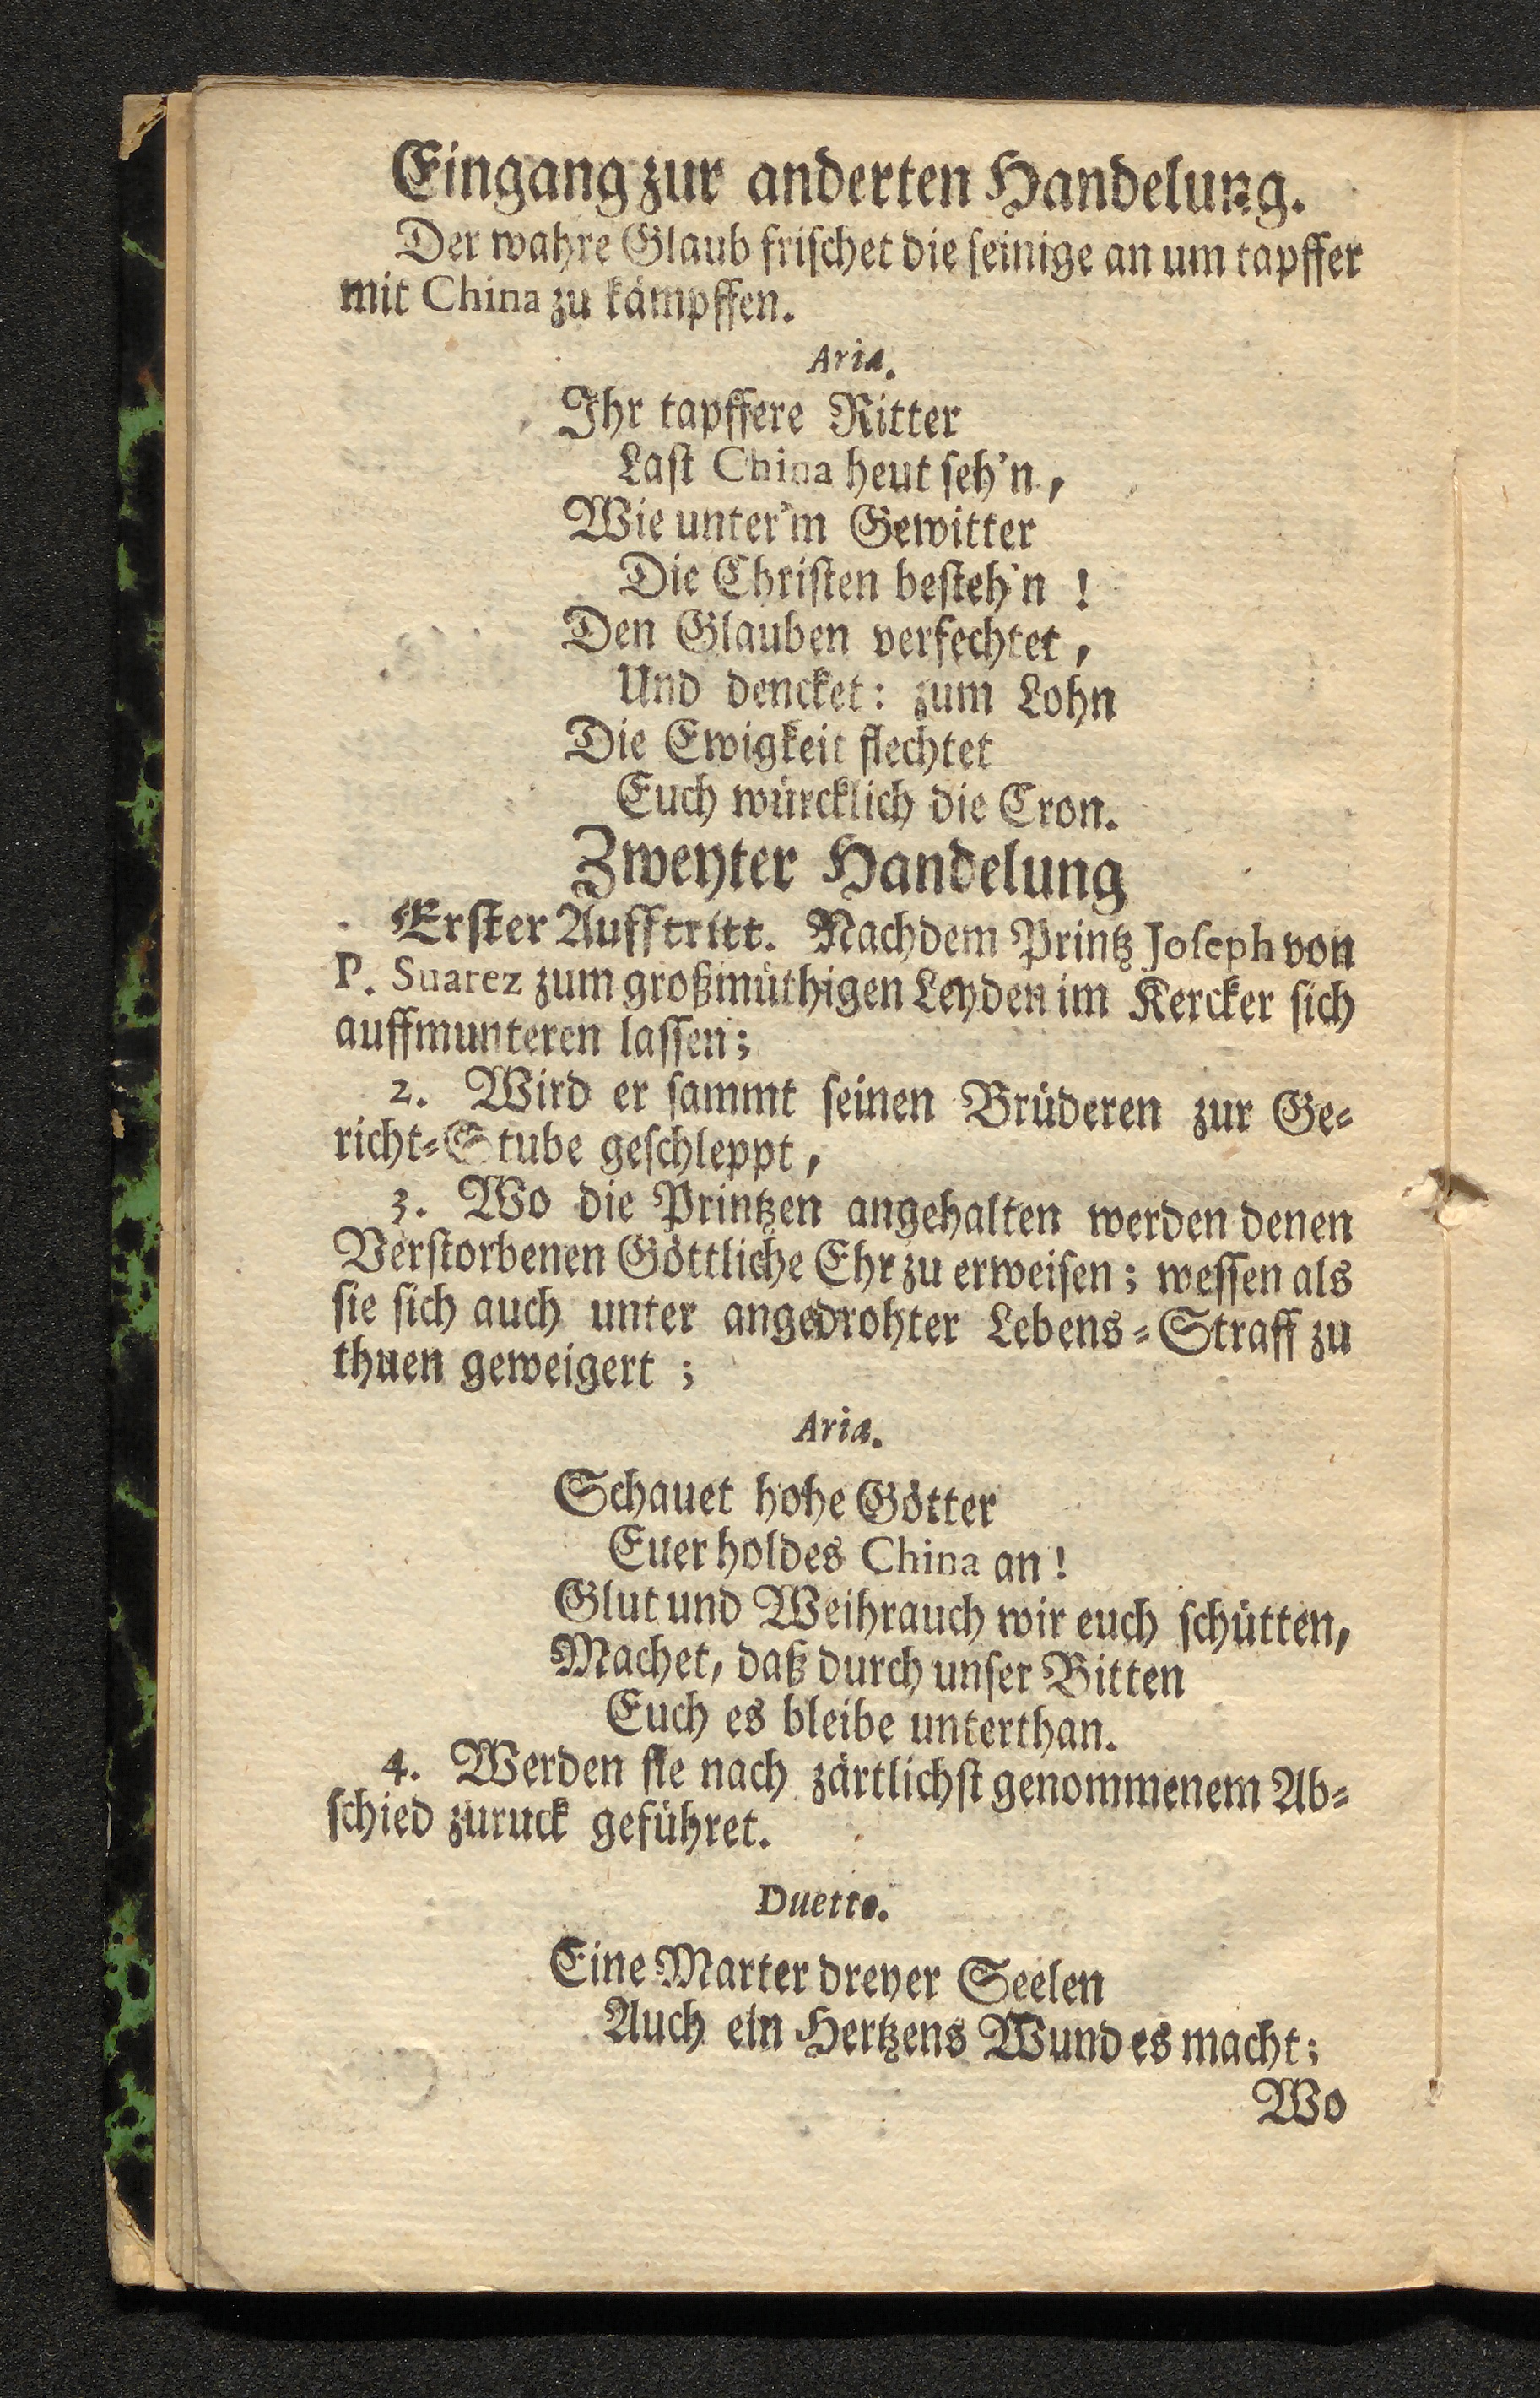 Eingang zur anderten Handelung.
Der wahre Glaub frischet die seinige an um tapffer
mit China zu kämpffen.
Aria.
Ihr tapffere Ritter
Last China heut seh'n,
Wie unter'm Gewitter
Die Christen besteh'n !
Den Glauben verfechtet,
Und dencket: zum Lohn
Die Ewigkeit flechtet
Euch würcklich die Cron.
Zweyter Handelung
Erster Aufftritt. Nachdem Printz Joseph von
P. Suarez zum großmüthigen Leyden im Kercker sich
auffmunteren lassen;
2. Wird er sammt seinen Brüderen zur Ge-
richt-Stube geschleppt,
3. Wo die Printzen angehalten werden denen
Verstorbenen Göttliche Ehr zu erweisen; wessen als
sie sich auch unter angedrohter Lebens-Straff zu
thuen geweigert ;
Aria.
Schauet hohe Götter
Euer holdes China an!
Glut und Weihrauch wir euch schütten,
Machet, daß durch unser Bitten
Euch es bleibe unterthan.
4. Werden sie nach zärtlichst genommenem Ab-
schied zuruck geführet.
Duetto.
Eine Marter dreyer Seelen
Auch ein Hertzens Wund es macht;
Wo